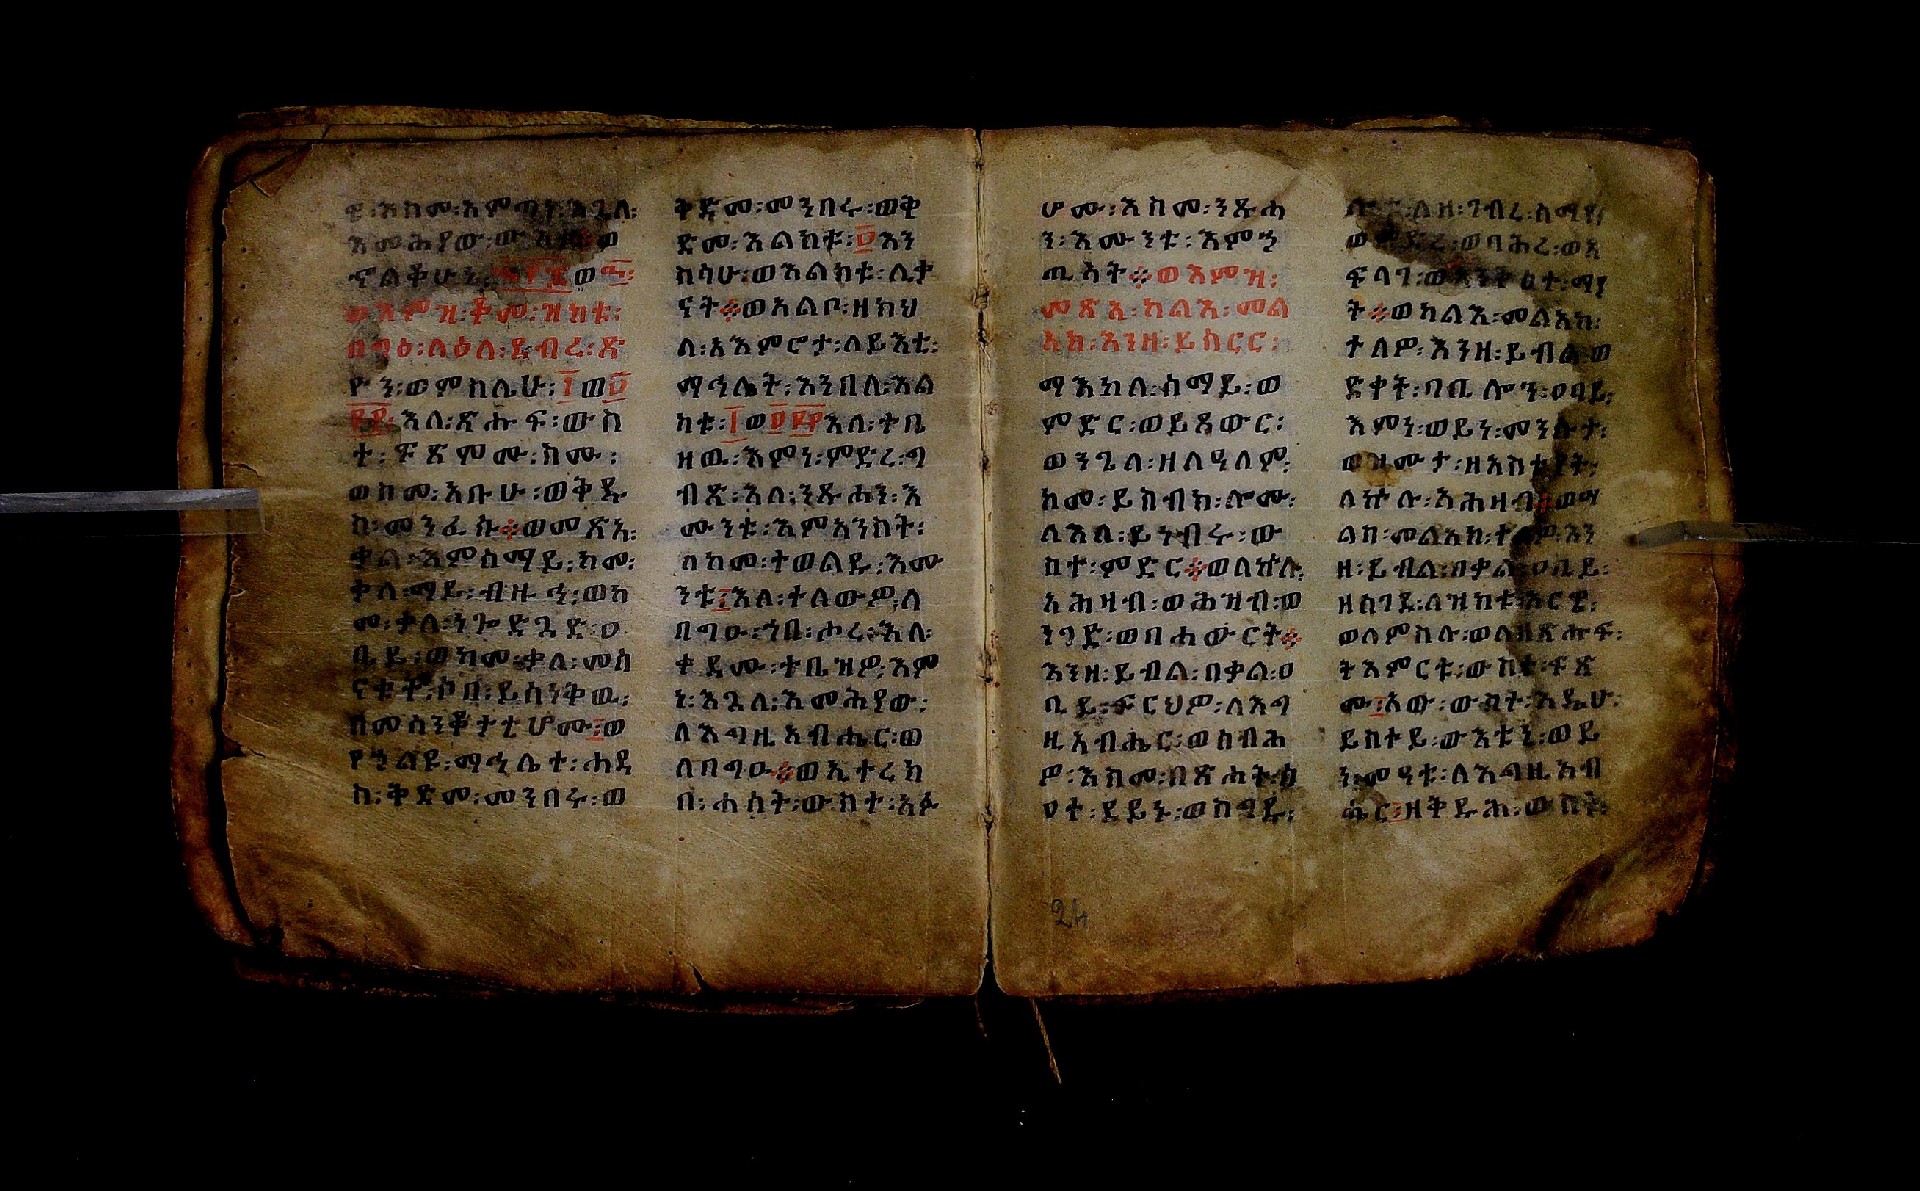 ወእምዝ፡ቆመ፡ዝክቱ፡
በግዕ፡ላዕለ፡ደብረ፡ጽ
ዮን፡ወምስሌሁ፡፻ወ፵
፵፻፡እለ፡ጽሑፍ፡ውስ
ተ፡ፍጽሞሙ፡ስሙ፡
ወስመ፡አቡሁ፡ወቅዱ
ስ፡መንፈስ፨ወመጽአ፡
ቃል፡እምሰማይ፡ከመ፡
ቃለ፡ማይ፡ብዙኅ፡ወከ
መ፡ቃለ፡ነጐድጓድ፡ዐ
ቢይ፡ወከመ፡ቃለ፡መሰ
ናቁት፡ሶበ፡ይሰነቅዉ፡
በመሰንቆታቲሆሙ፡ወ
የኀልዩ፡ማኅሌተ፡ሐዲ
ስ፡ቅድመ፡መንበሩ፡ወ
ቅድመ፡መንበሩ፡ወቅ
ድመ፡እልክቱ፡፬እን
ስሳሁ፡ወእልክቱ፡ሊቃ
ናት፨ወአልቦ፡ዘክህ
ለ፡አእምሮታ፡ለይእቲ፡
ማኅሌት፡እንበለ፡እል
ክቱ፡፻ወ፵፵፻እለ፡ተቤ
ዘዉ፡እምነ፡ምድረ፡ግ
ብጽ፡እለ፡ንጹሐን፡እ
ሙንቱ፡እምአንስት፡
በከመ፡ተወልዱ፡እሙ
ንቱ፡እለ፡ተለውዎ፡ለ
በግዑ፡ኀበ፡ሖረ፡እለ፡
ቀደሙ፡ተቤዝዎ፡እም
ነ፡እጓለ፡እመሕያው፡
ለእግዚአብሔር፡ወ
ለበግዑ፨ወኢተረክ
በ፡ሐሰት፡ውስተ፡አፉ
ሆሙ፡እስመ፡ንጹሓ
ን፡እሙንቱ፡እምኃ
ጢአት፨ወእምዝ፡
መጽአ፡ካልእ፡መል
አክ፡እንዘ፡ይሰርር፡
ማእከለ፡ሰማይ፡ወ
ምድር፡ወይጸውር፡
ወንጌለ፡ዘለዓለም፡
ከመ፡ይስብክ፡ሎሙ፡
ለእለ፡ይነብሩ፡ው
ስተ፡ምድር፨ወለኵሉ፡
አሕዛብ፡ወሕዝብ፡ወ
ነገድ፡ወበሐውርት፨
እንዘ፡ይብል፡በቃል፡ዐ
ቢይ፡ፍርህዎ፡ለእግ
ዚአብሔር፡ወሰብሕ
ዎ፡እስመ፡በጽሐት፡ሰ
ዓተ፡ደይኑ፡ወስግዱ፡
ሎቱ፡ለዘ፡ገብረ፡ሰማየ፡
ወምድረ፡ወባሕረ፡ወአ
ፍላገ፡ወአንቅዕተ፡ማያ
ት፨ወካልእ፡መልአክ፡
ተለዎ፡እንዘ፡ይብል፡ወ
ድቀት፡ባቢሎን፡ዐባይ፡
እምነ፡ወይነ፡መንሱታ፡
ወዝሙታ፡ዘአስተየት፡
ለኵሉ፡አሕዛብ፨ወሣ
ልስ፡መልአክ፡ተለዎ፡እን
ዘ፡ይብል፡በቃል፡ዐቢይ፡
ዘሰገደ፡ለዝክቱ፡አርዌ፡
ወለምስሉ፡ወለዘጽሑፍ፡
ትእምርቱ፡ውስተ፡ፍጽ
ሙ፡አው፡ውስተ፡እዴሁ፡
ይሰተይ፡ውእቱኒ፡ወይ
ነ፡መዓቱ፡ለእግዚአብ
ሔር፡ዘቅዱሕ፡ውስተ፡